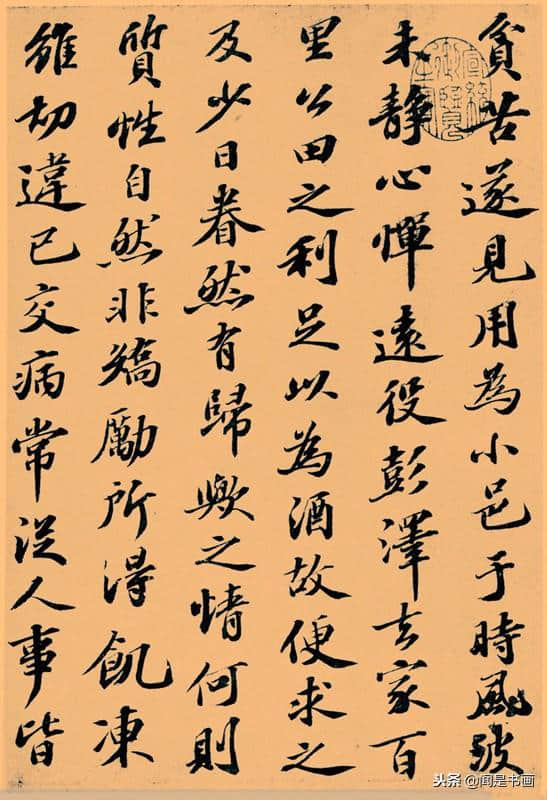 貧苦遂見用為小邑于時風波
未靜心憚遠役彭澤去家百
里公田之利足以為酒故便求之
及少日眷然有歸歟之情何則
質性自然非矯勵所得飢凍
雖切違己交病常從人事皆
头条 @闻是书画